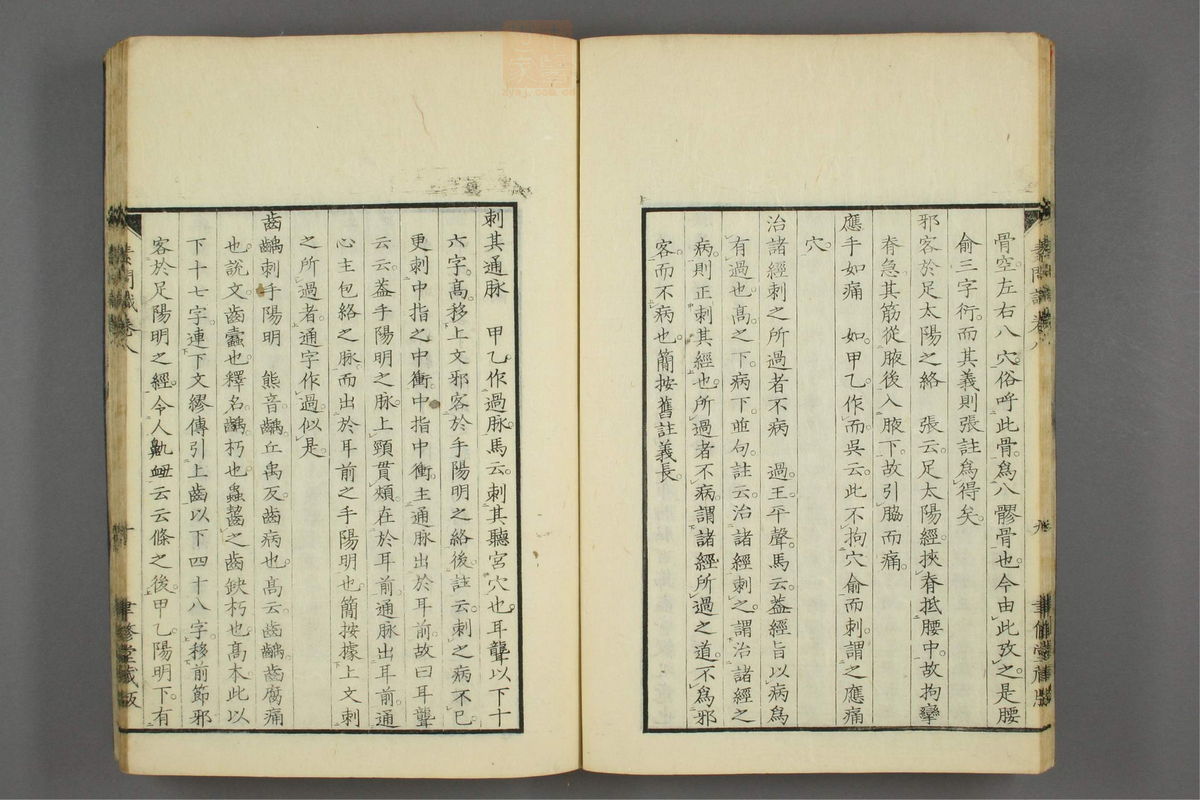 骨空左右八穴俗呼此骨爲八髎骨也今由此攷之是腰
俞三字衍而其義則張註爲得矣
邪客於足太陽之絡 張云足太陽經挾脊抵腰中故拘攣
脊急其筋從腋後入腋下故引脇而痛
應手如痛 如甲乙作而吳云此不拘穴俞而刺謂之應痛
穴
治諸經刺之所過者不病 過王平聲馬云蓋經旨以病爲
有過也高之下病下竝句註云治諸經刺之謂治諸經之
病則正刺其經也所過者不病謂諸經所過之道不爲邪
客而不病也簡按舊註義長
素問識卷八
九
聿修堂藏版
刺其通脉 甲乙作過脉馬云刺其聽宮穴也耳聾以下十
六字高移上文邪客於手陽明之絡後註云刺之病不已
更刺中指之中衝中指中衝主通脉出於耳前故曰耳聾
云云蓋手陽明之脉上頸貫頰在於耳前通脉出耳前通
心主包絡之脉而出於耳前之手陽明也簡按據上文刺
之所過者通字作過似是
齒齲刺手陽明 熊音齲丘禹反齒病也高云齒齲齒腐痛
也說文齒蠹也釋名齲朽也蟲齧之齒缺朽也高本此以
下十七字連下文繆傳引上齒以下四十八字移前節邪
客於足陽明之經令人鼽衄云云條之後甲乙陽明下有
素問識卷八
十
聿修堂藏版